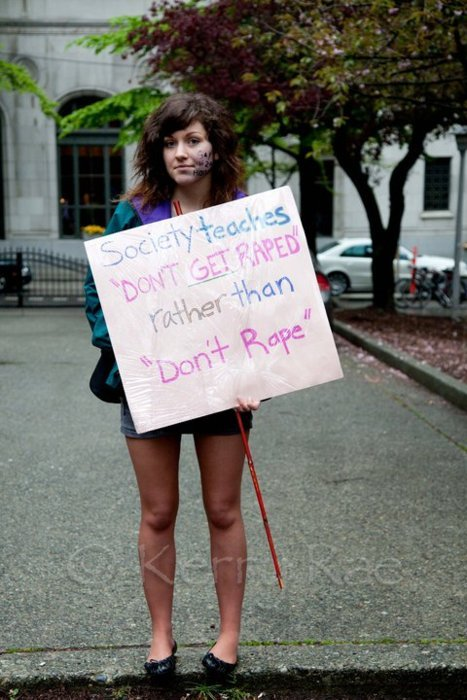 Society teaches
"DON'T GET RAPED"
rather than
"Don't Rape"
© Kerri Rae